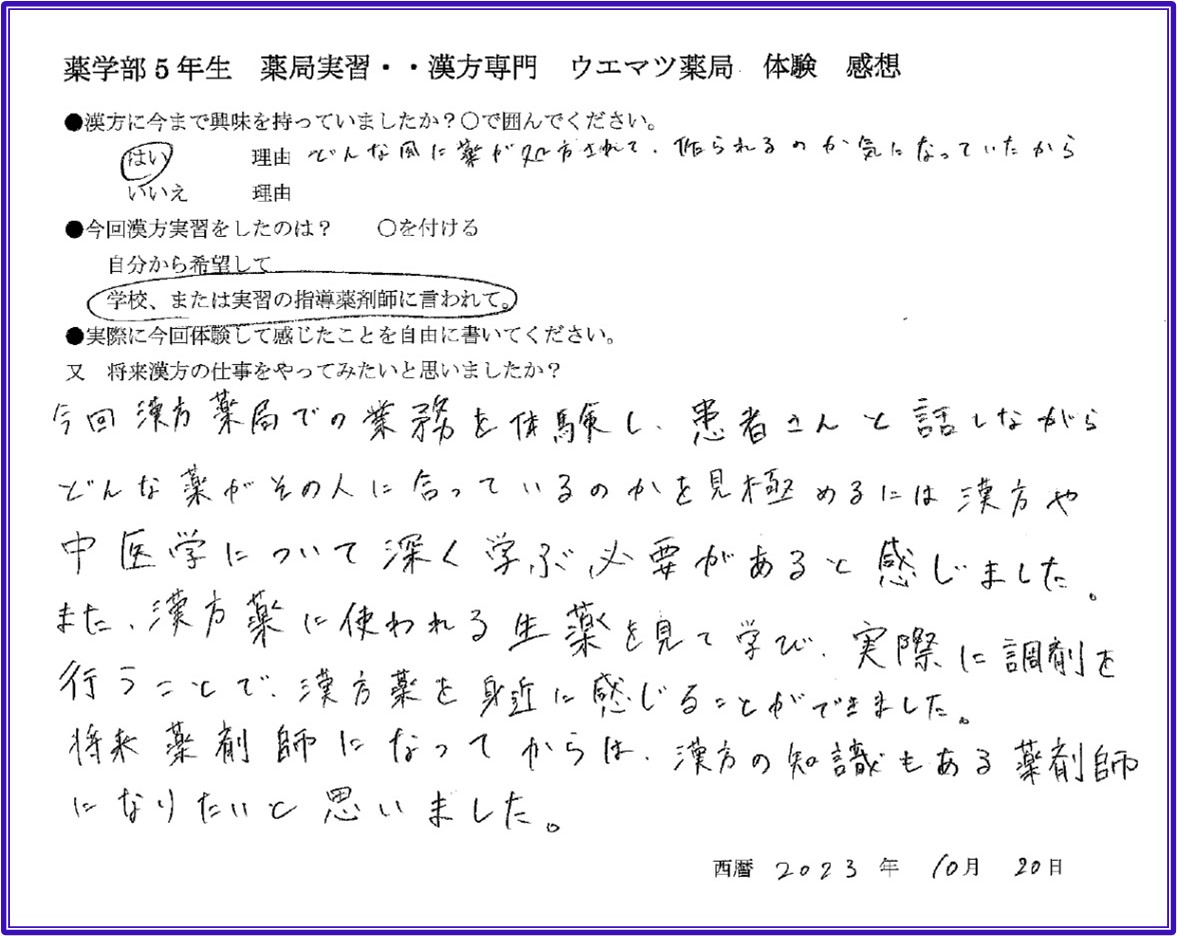 薬学部5年生　薬局実習・・漢方専門　ウエマツ薬局　体験　感想
●漢方に今まで興味を持っていましたか？○で囲んでください。
はい　理由　どんな風に薬が処方されて、作られるのか気になっていたから
いいえ　理由
●今回漢方実習をしたのは？　○を付ける
自分から希望して
学校、または実習の指導薬剤師に言われて。
●実際に今回体験して感じたことを自由に書いてください。
又　将来漢方の仕事をやってみたいと思いましたか？
今回漢方薬局での業務を体験し、患者さんと話しながら
どんな薬がその人に合っているのかを見極めるには漢方や
中医学について深く学ぶ必要があると感じました。
また、漢方薬に使われる生薬を見て学び、実際に調剤を
行うことで、漢方薬を身近に感じることができました。
将来薬剤師になってからは、漢方の知識もある薬剤師
になりたいと思いました。
西暦　2023年　10月　20日